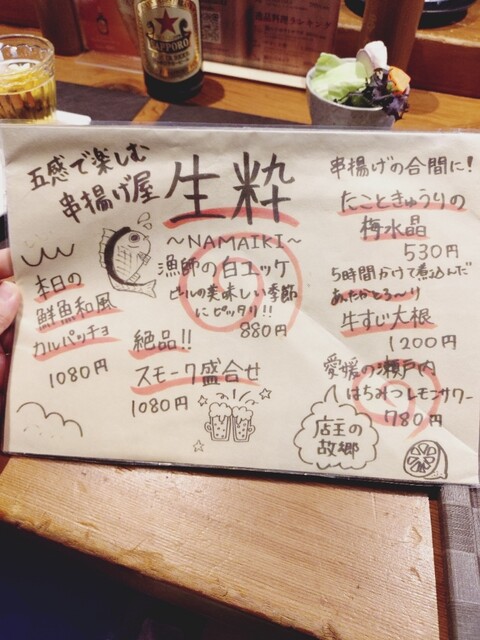 SAPPORO
五感で楽しむ
串揚げ屋
生粋
〜NAMAIKI〜
漁師の白ユッケ
ビールの美味しい季節
にピッタリ!!
880円
本日の
鮮魚和風
カルパッチョ
1080円
絶品!!
スモーク盛合せ
1080円
串揚げの合間に!
たこときゅうりの
梅水晶
530円
5時間かけて煮込んだ
あったかとろ〜り
牛すじ大根
1200円
愛媛の瀬戸内
はちみつレモンサワー
780円
店主の
故郷